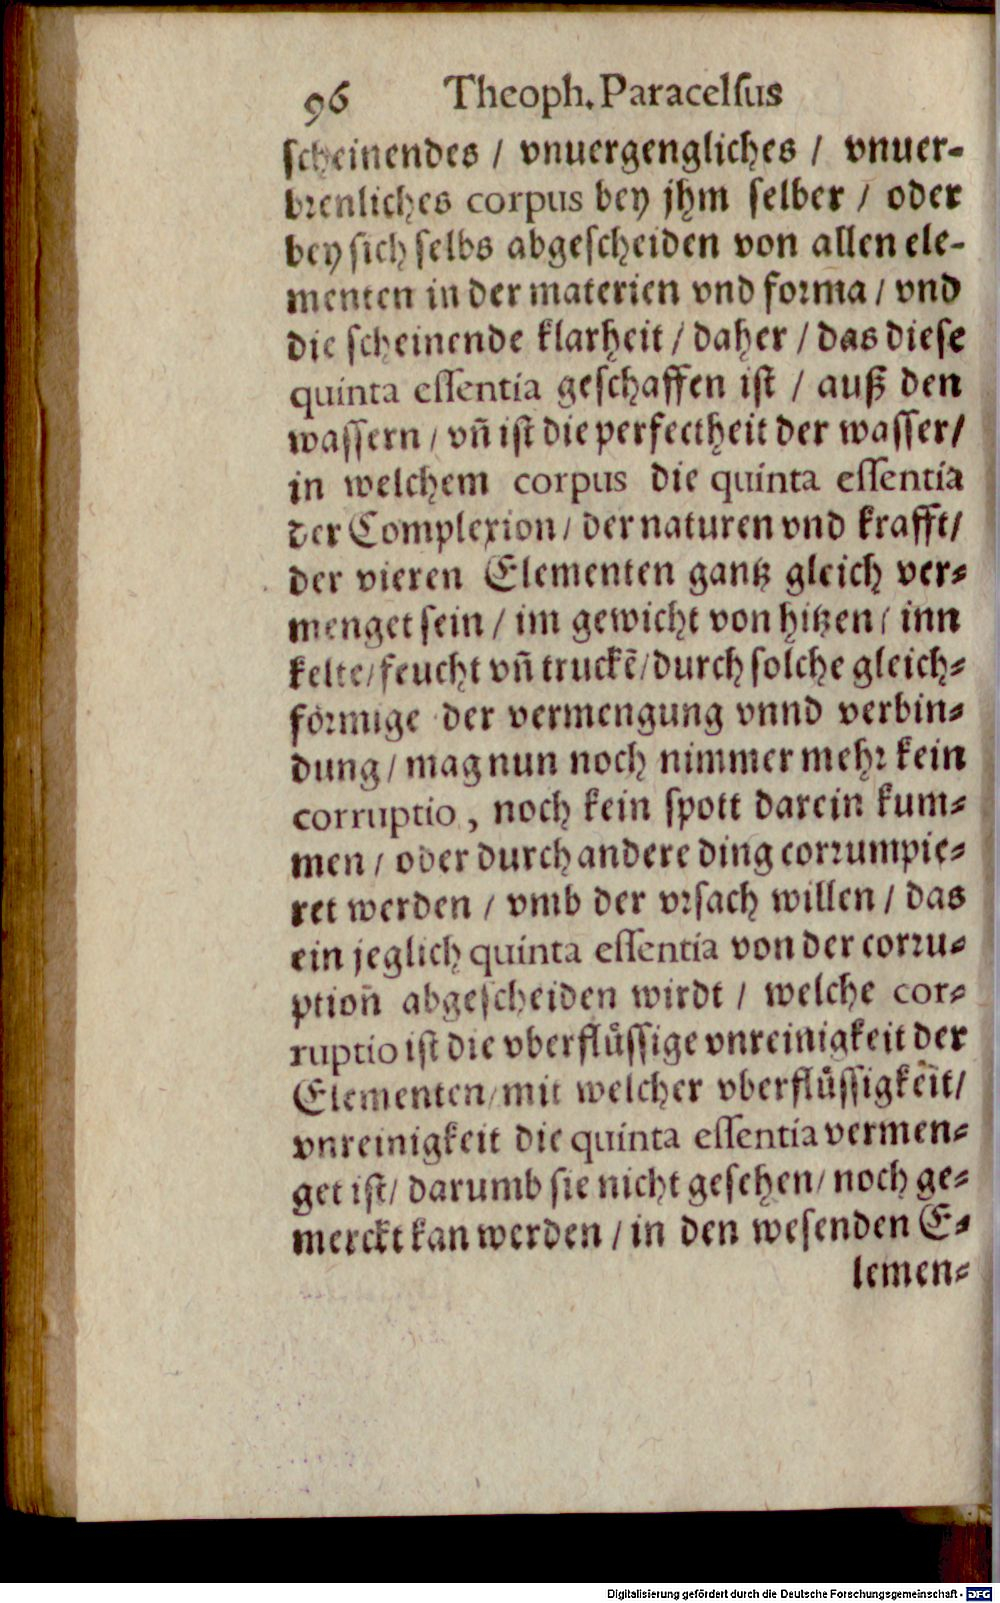 96 Theoph. Paracelſus
ſcheinendes / vnuergengliches / vnuer-
brenliches corpus bey jhm ſelber / oder
bey ſich ſelbs abgeſcheiden von allen ele-
menten in der materien vnd forma / vnd
die ſcheinende klarheit / daher / das dieſe
quinta eſſentia geſchaffen iſt / auß den
waſſern / vñ iſt die perfectheit der waſſer /
in welchem corpus die quinta eſſentia
der Complexion / der naturen vnd krafft /
der vieren Elementen gantz gleich ver-
menget ſein / im gewicht von hitzen / inn
kelte / feucht vñ truckẽ / durch ſolche gleich-
förmige der vermengung vnnd verbin-
dung / mag nun noch nimmer mehr kein
corruptio, noch kein ſpott darein kum-
men / oder durch andere ding corrumpie-
ret werden / vmb der vrſach willen / das
ein jeglich quinta eſſentia von der corru-
ptioñ abgeſcheiden wirdt / welche cor-
ruptio iſt die vberflüſſige vnreinigkeit der
Elementen / mit welcher vberflüſſigkeit /
vnreinigkeit die quinta eſſentia vermen-
get iſt / darumb ſie nicht geſehen / noch ge-
merckt kan werden / in den weſenden E-
lemen-
Digitalisierung gefördert durch die Deutsche Forschungsgemeinschaft - DFG